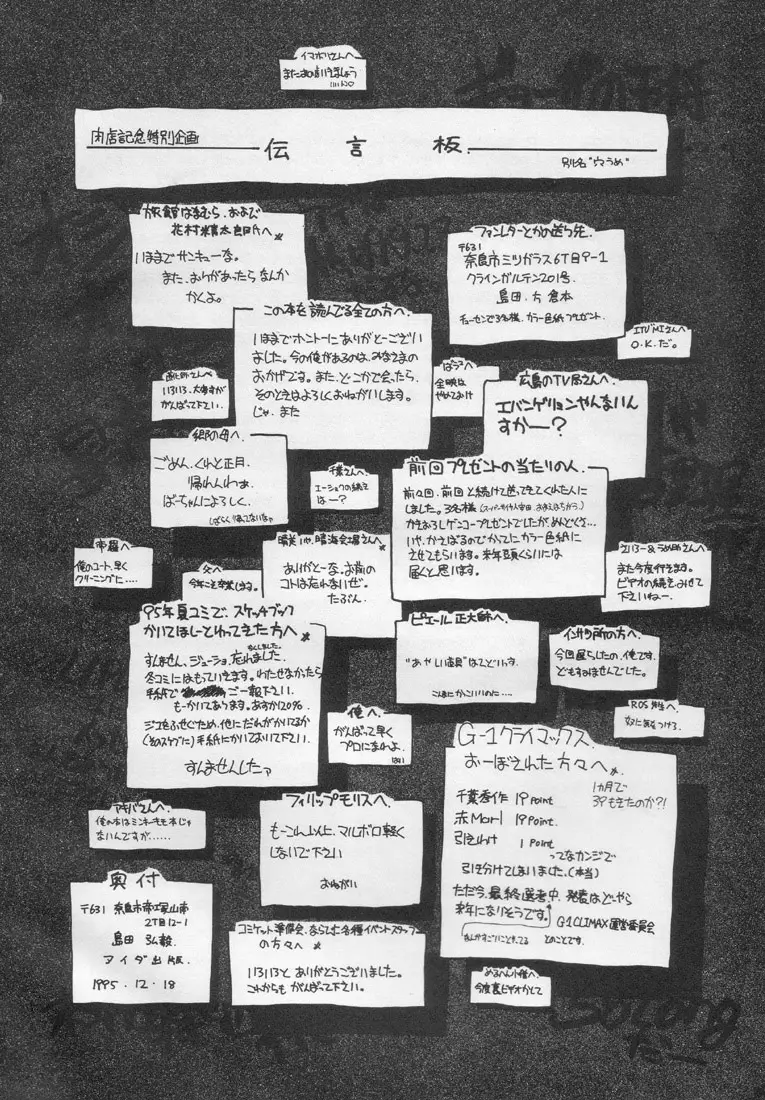 イマホリさんへ
肉店記念特別企画
伝言板
別名"ウマうめ"
旅館はまむら、および
いままでサンキューな。
また、おりがあったらなんか
かくよ。
ファンレターとかの送り先
〒631
奈良市ミツガラス6丁目9-1
クラインガルテン201号
島田方 倉本
チューセンで3名様、カラー色紙プレゼント.
O.K.だ。
この本を読んでる全ての方へ.
いままでホントーにありがとーござい
ました。今の俺があるのは、みなさまの
おかげです。また、どこかで会ったら、
そのときはよろしくおねがいします。
じゃ、また
いろいろ、大変ですが
がんばって下さい.
広島のTV局さんへ.
エバンゲリョンやんないん
すかー?
郷の母へ.
ごめん、くれと正月、
帰れんわぁ.
ばーちゃんによろしく.
しばらく帰ってないなぁ
千葉さんへ.
エーショウの続き
はー?
前回プレゼントの当たりの人.
前々回、前回と続けて送ってきてくれた人に
しました。3名様
かきおろしゲンコープレゼントでしたが、めんどくさ…
いや、かさばるのでかってにカラー色紙に
させてもらいます。来年頭くらいには
届くと思います.
帝羅へ
俺のコート、早く
クリーニングに….
父へ
今年こそ卒業します。
ありがとーな、お前の
コトは忘れないぜ.
たぶん.
また今度行きます.
ビデオの続きみせて
下さいねー.
95年夏コミで、スケッチブック
かいてほしーとわってきた方へ
すんません、ジューショ忘れました.
冬コミにはもっていきます。わたせなかったら
手紙でご一報下さい.
もーかいてあります。おすか120%
ジコをふせぐため、他にだれがかいてるか
(そのスケブに)手紙にかいておいて下さい.
すんませんしたァ
ピエール正大師へ.
"あやしい道具"はてどいっす.
インサツ所の方へ.
今回落ちしたの、俺です.
どもすみませんでした。
ROS先生へ.
女に気をつけろ.
俺へ.
がんばって早く
プロになれよ.
はい
G-1クライマックス
おーぼされた方々へ.
千葉秀作 19 Point
赤Mari 19 Point
引きわけ 1 Point
1カ月で
39もきたのか?!
ってなカンジで
引き分けてしまいました.(本当)
ただ今、最終選考中、発表はどーやら
来年になりそうです.
G-1 CLIMAX 運営委員会
とのことです.
アキバさんへ.
俺の本はミンキーモモ本じゃ
ないんですが……
フィリップモリスへ.
もーこれ以上、マルボロ軽く
しないで下さい
おねがい
奥付
〒631 奈良市帝塚山南
2丁目12-1
島田 弘毅
アイダ出版.
1995.12.18
コミケット準備会、ならびに各種イベントスタッフー
の方々へ
いろいろと、ありがとうございました。
これからも がんばって下さい.
めるへん小僧へ.
今度裏ビデオかして